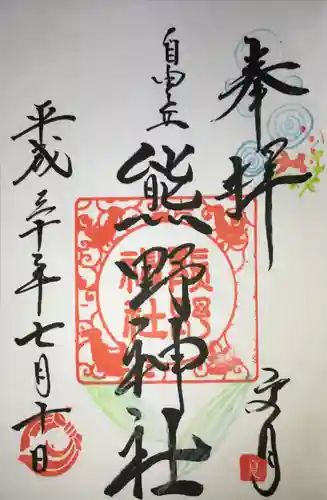 奉拝
文月
夏
自由が丘
熊野神社
熊野
神社
平成三十年七月十日